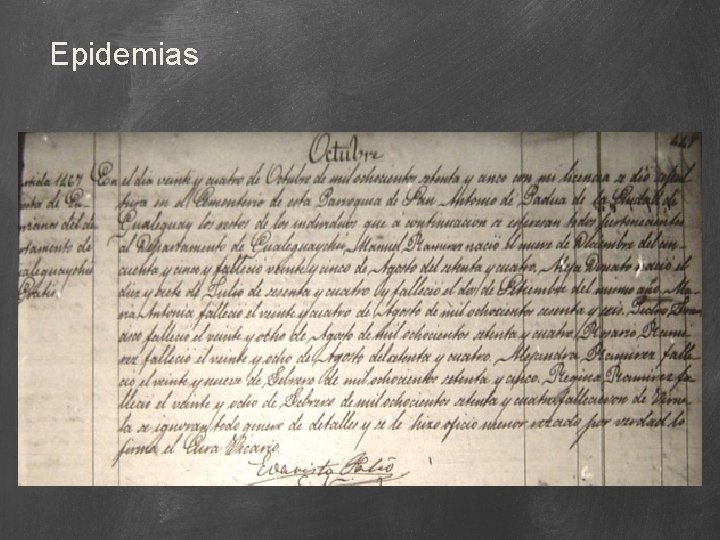 Epidemias
Octubre
En el dia veinte y cuatro de Octubre de mil ochocientos setenta y cinco con mi licencia se dió sepul
tura en el Cementerio de esta Parroquia de San Antonio de Padua de la Ciudad de
Gualeguay los restos de los individuos que a continuacion se espresan todos pertenecientes
al Departamento de Gualeguaychu Manuel Ramirez nació el nueve de Diciembre del cin
cuenta y cinco y falleció veinte y cinco de Agosto del setenta y cuatro, Donato nació el
dies y siete de Julio de sesenta y cuatro y falleció el dos de Setiembre del mismo año, Ma
ria Antonia falleció el veinte y cuatro de Agosto de mil ochocientos y seis, Pedro
falleció el veinte y ocho de Agosto de mil ochocientos setenta y cuatro, Rosario Rami
rez falleció el veinte y ocho de Agosto del setenta y cuatro, Alejandra Ramirez falle
ció el veinte y nueve de Febrero de mil ochocientos setenta y cinco, Regina Ramirez fa
lleció el veinte y ocho de Febrero de mil ochocientos setenta y cuatro, fallecieron de Virue
la se ignoran todo genero de detalles y se le hizo oficio menor rezado por verdad lo
firma el Cura Vicario.
Evaristo